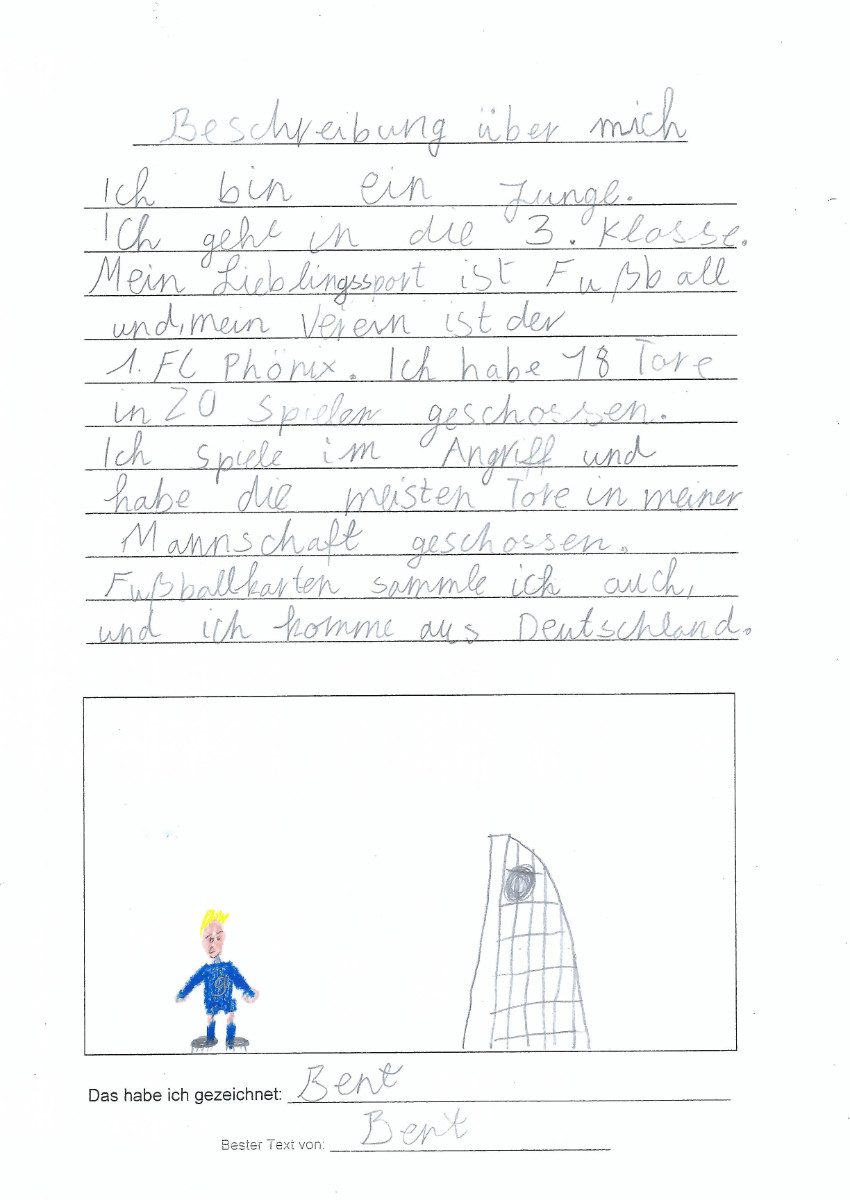 Beschreibung über mich
Ich bin ein Junge.
Ich gehe in die 3. Klasse.
Mein Lieblingssport ist Fußball
und, mein Verein ist der
1. FC Phönix. Ich habe 18 Tore
in 20 Spielen geschossen.
Ich spiele im Angriff und
habe die meisten Tore in meiner
Mannschaft geschossen.
Fußballkarten sammle ich auch,
und ich komme aus Deutschland.
9
Das habe ich gezeichnet: Bent
Bester Text von: Bent